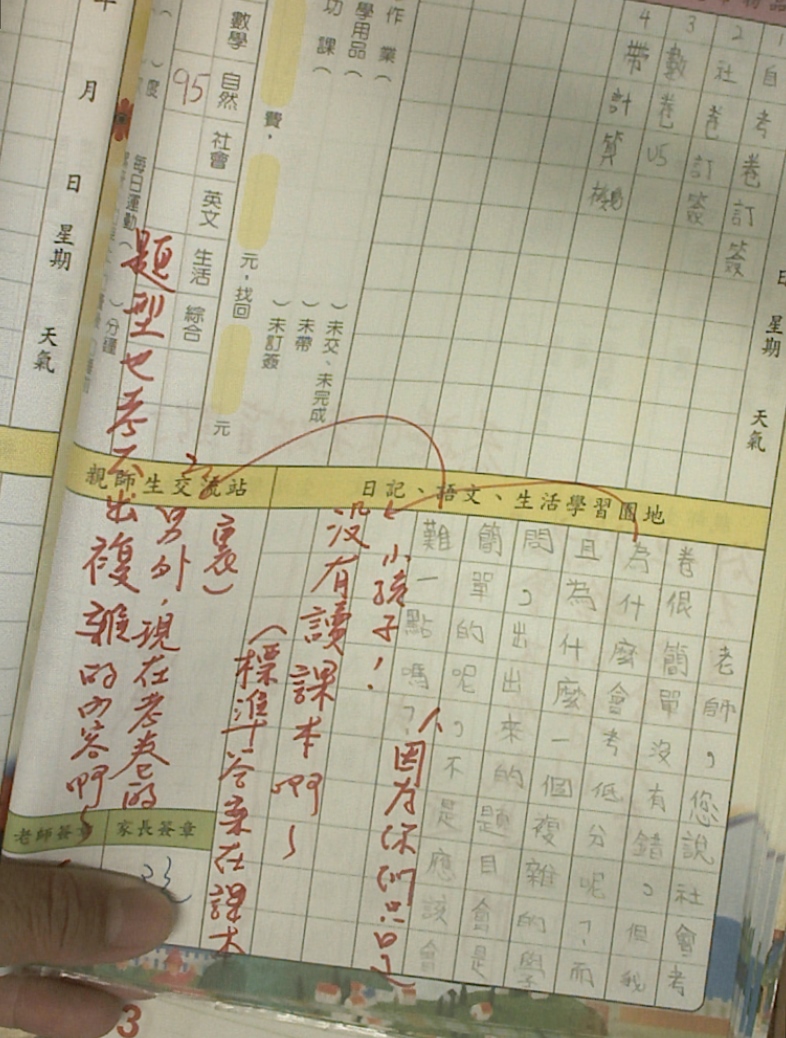 日 星期 天氣
1 自考卷訂簽
2 社卷訂簽
3 數卷U5
4 帶計算機
作業（
學用品（
功課（
）未交、未完成
）未帶
）未訂簽
費，
元，找回
元
數學 自然 社會 英文 生活 綜合
95
每日運動（
）分鐘
月 日 星期 天氣
日記、語文、生活學習園地
老師，您說社會考
卷很簡單沒有錯，但我
為什麼會考低分呢？而
且為什麼一個複雜的學
問，出出來的題目會是
簡單的呢，不是應該會
難一點嗎？
小孩子！
1、因為你們只是
沒有讀課本啊~
（標準答案在課本
裏）
親師生交流站
2、另外，現在考卷的
題型也考不出複雜的內容啊~
家長簽章
老師簽章
3